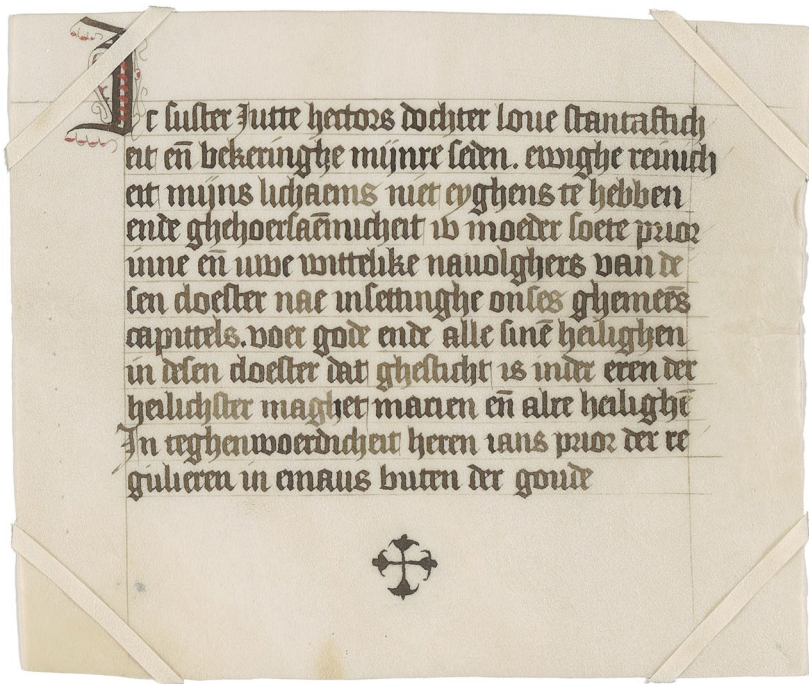 Ic suster Jutte hectors dochter loue stantaftich
eit en̄ bekeringhe mijnre seden. ewighe reinich
eit mijns lichaems niet eyghens te hebben
ende ghehoersaēmicheit iv moeder soete prior
inne en̄ uwe wittelike navolghers van de
sen cloester nae insettinghe onses ghemeēs
capittels. voer gode ende alle sinē heilighen
in desen cloester dat ghesticht is inder eren der
heilichster maghet marien en̄ alre heilighē
In teghenwoerdicheit heren ians prior der re
gulieren in emaus buten der goude